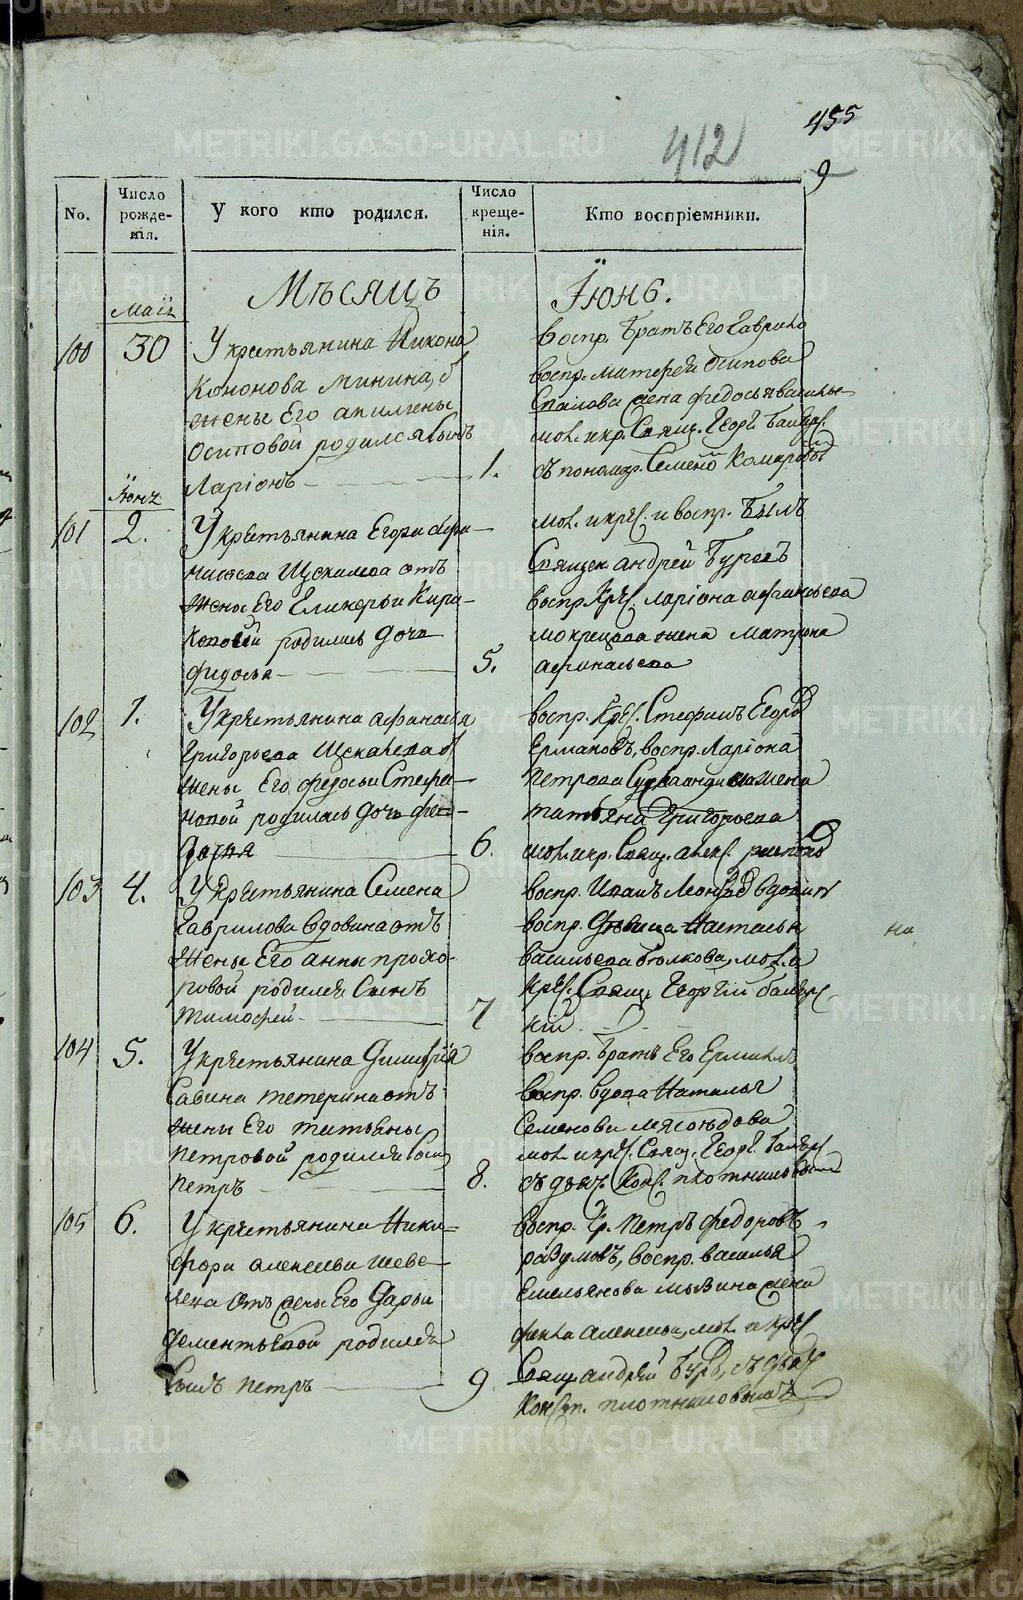 412
455
9
No.
Число рожде-нія.
У кого кто родился.
Число креще-нія.
Кто воспріемники.
Мѣсяцъ Іюнь.
Маія
100 30 У крестьянина Никона
Кононова Минина, ѿ
жены Его
Осиповой родился Сынъ
Ларіонъ 1.
воспр. Братъ Его Гаврило
воспр. матерья Осипова
жена федосья василье
мол. и кр. Свящ. Георг.
съ пономар. Семено Комаров
Іюня
101 2. У крестьянина Егора
отъ
жены Его Гликерьи Кира-
ковой родилась дочь
федосья 5.
мол. и крес. и воспр. Былъ
Священ андрей
воспр. Крес. Ларіона афанасьева
мокрецова жена Матрона
афонасьева
102 1. У крестьянина афанасья
Григорьева
жены Его федосьи Стефа-
новой родилась дочь фео-
досия 6.
воспр. Крес. Стефанъ Егоров
Ермаковъ, воспр. Ларіона
Петрова жена
татьяна Григорьева
мол. и кр. Свящ. алек.
103 4. У крестьянина Семена
Гаврилова Вдовина отъ
жены Его анны прохо-
ровой родился Сынъ
Тимофей 7
воспр. Иванъ Вдовин
на
воспр. дѣвица Настасья
васильева Волкова, мол. и
крес. Свящ. Георгій
кій.
104 5. У крестьянина Дими
Савина тетерина отъ
жены Его татьяны
Петровой родился Сынъ
Петръ 8.
воспр. Братъ Его Ермилъ
воспр. вдова Наталья
Семенова мясоѣдова
мол. и крес. Свящ. Георг.
съ дьяч. Конс. плотниковым
105 6. У крестьянина Ники-
фора алексѣева шеве-
лева отъ жены Его Дарьи
дементьевой родился
Сынъ Петръ 9
воспр. кр. Петръ федоровъ
разумовъ, воспр. василья
Емельянова мызина жена
фекла алексѣева, мол. и крес
Свящ андрей съ дьяч
Констн. плотниковымъ
METRIKI.GASO-URAL.RU